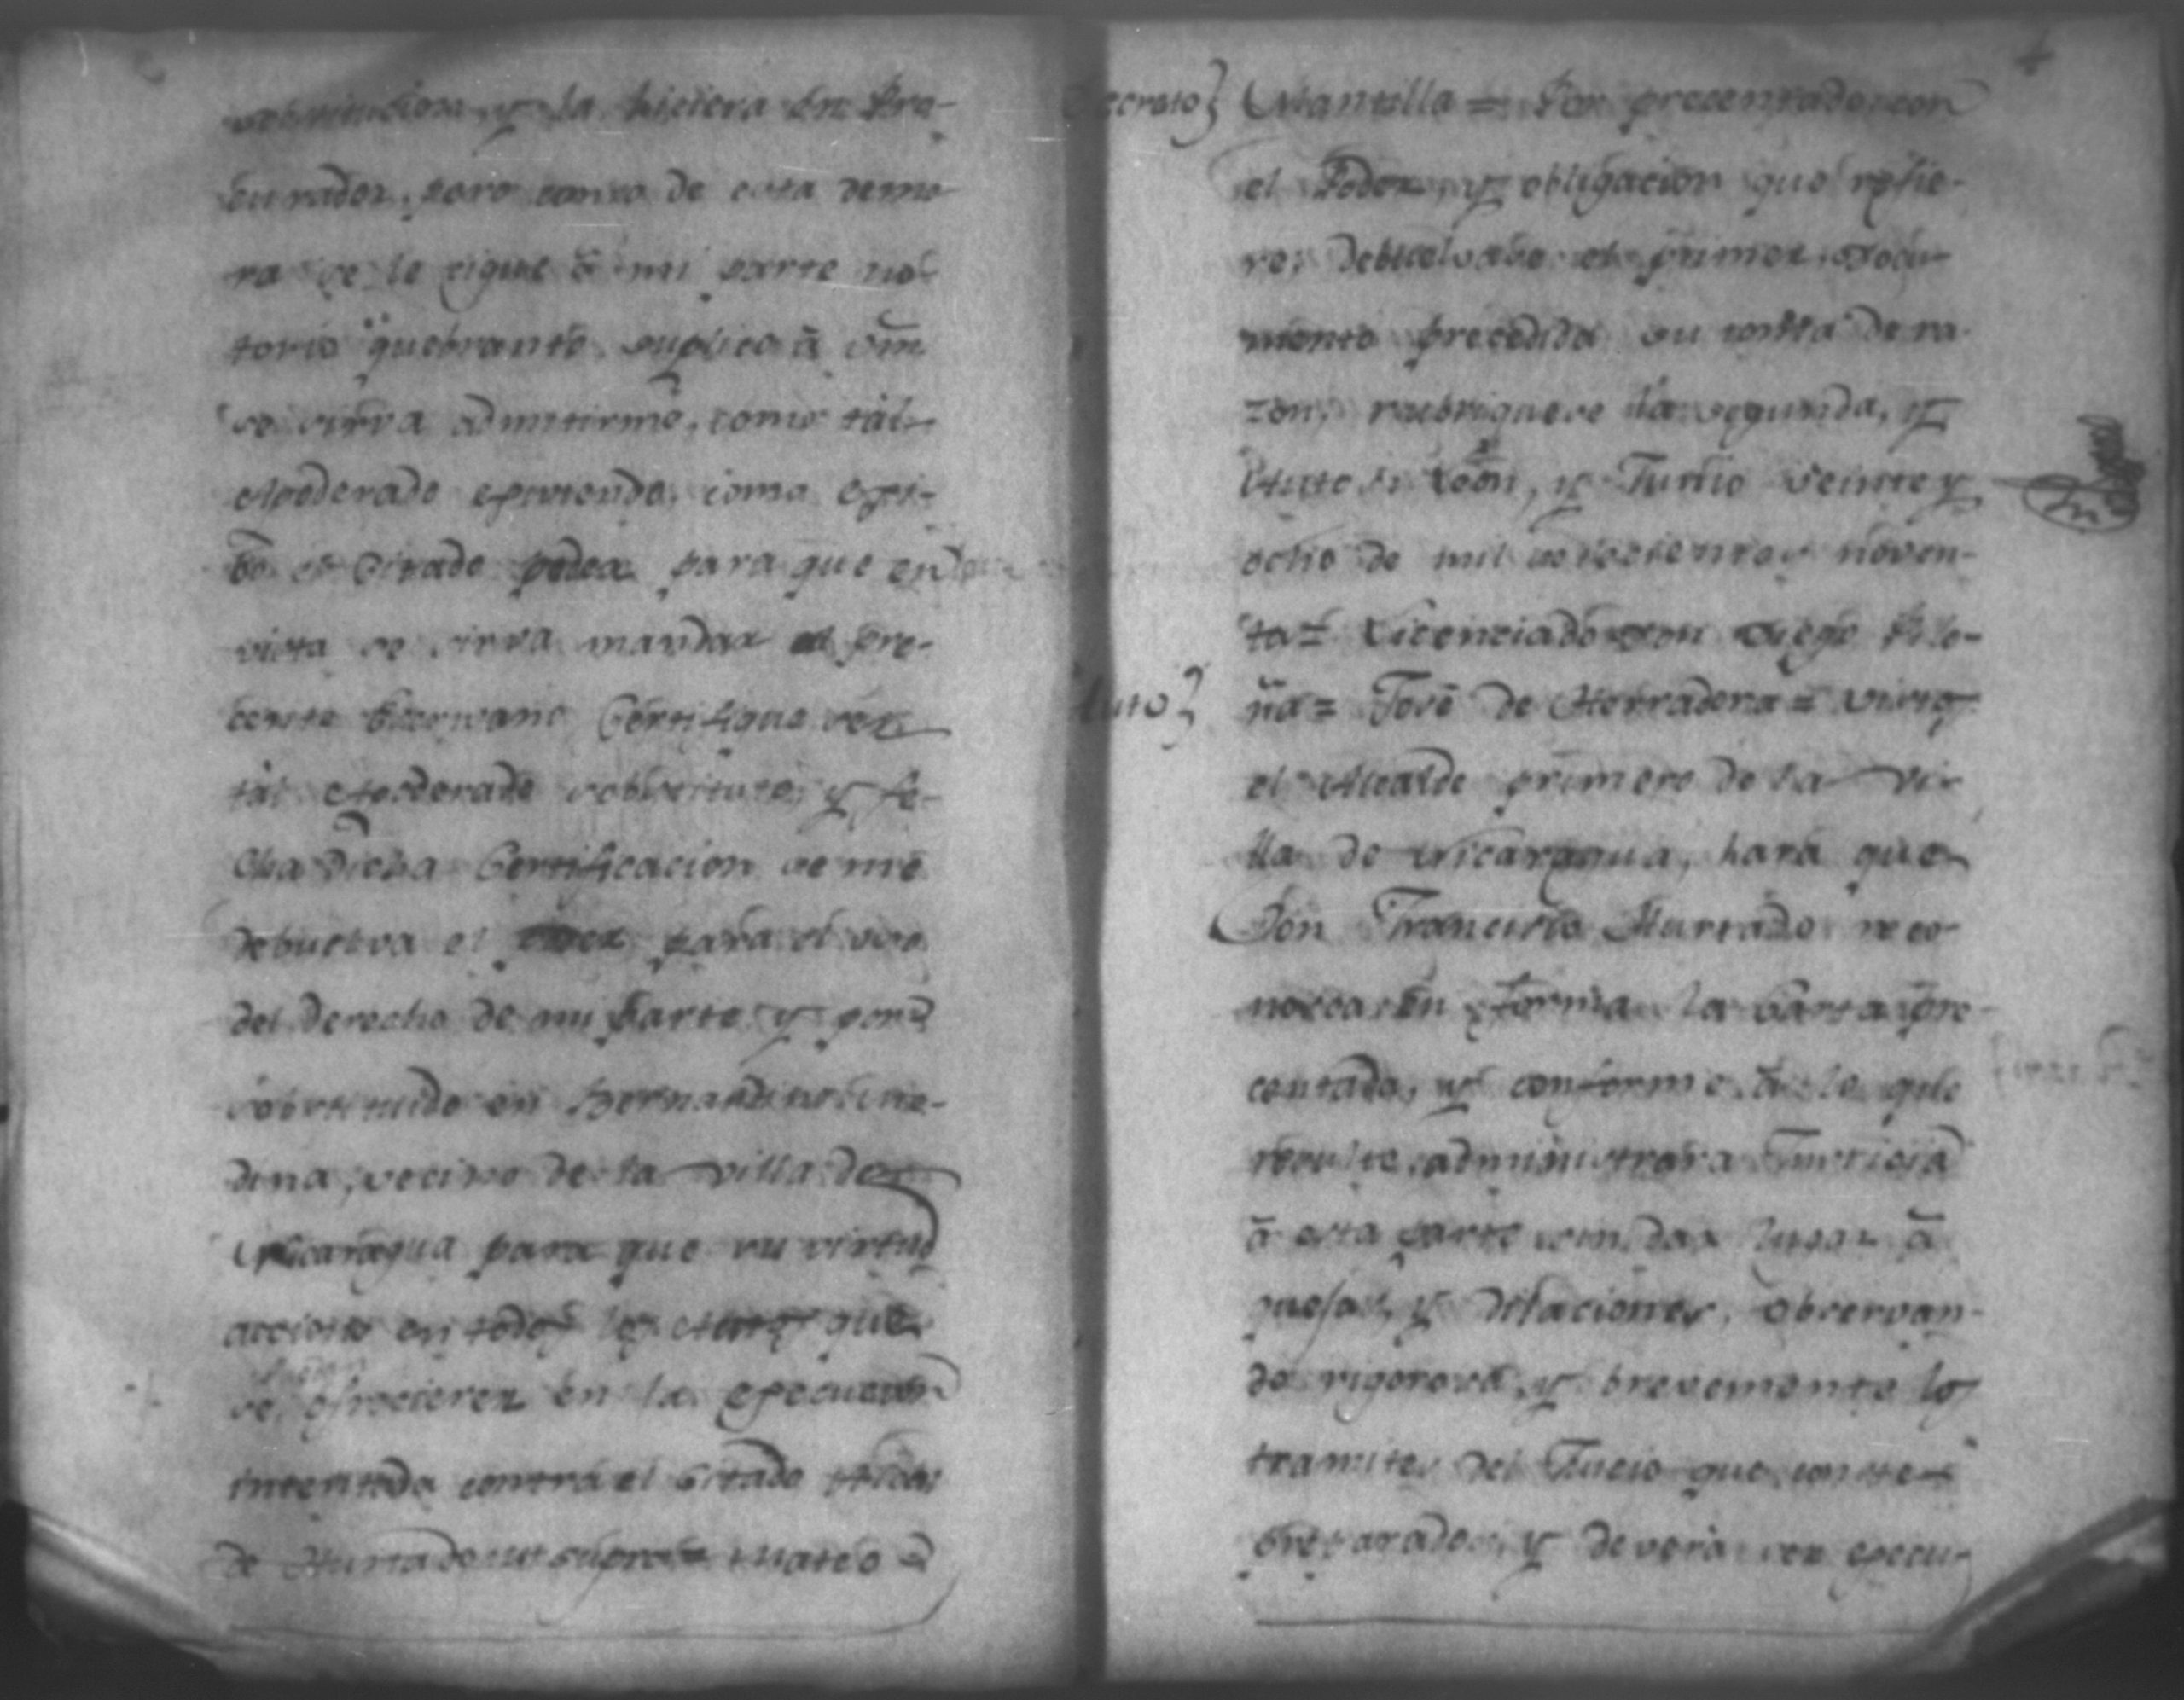 y la hiciera en Pro-
curador, pero como de esta demo-
ra se le sigue â mi parte no-
torio quebranto, suplico â vm̃
se sirva admitirme, como tál
Apoderado exiviendo, como exsi-
bo el citado poder para que en
vista se sirva mandar el pre-
cente Escrivano Certifique sér
tál Apoderado sobstituto, y fe-
cha dicha Certificacion se me
debuelva el para el uso
del derecho de mi parte y pon
sobstituido en Bernardino
dina, vecino de la villa de
Nicaragua para que su virtud
accione en todos los que
se ofrecieren en la execucion
intentada contra el Citado
de Hurtado ut supra = Mateo
4
Decreto} Mantilla = Por precentado con
el Poder, y obligacion que refie-
re, debuelvase el primer docu-
mento precedida su de ra-
zon, rubriquese la segunda, y
Auto = Leon, y Junio veinte y
ocho de mil setecientos noven-
ta = Licenciado Don Diego Pile-
Auto} ña = José de Herradora = Vistos
el Alcalde primero de la Vi-
lla de Nicaragua, hará que
Don Francisco Hurtado reco-
nosca en forma la Carta pre-
centada, y conforme â lo que
resulte administrara Justicia
â esta parte sin dar lugar â
quejas, y dilaciones, observan-
do rigorosa, y brevemente los
tramites del Jucio que
preparado, y deverá ser execu-